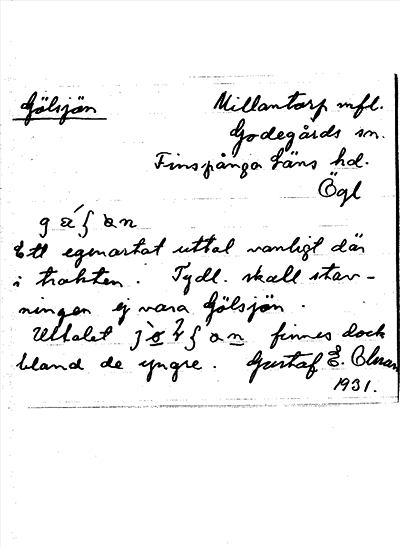 Gölsjön
Millantorp mfl.
Godegårds sn.
Finspånga läns hd.
Ögl
Ett egenartat uttal vanligt där
i trakten. Tydl. skall stav-
ningen ej vara Gölsjön.
Uttalet finnes dock
bland de yngre. Gustaf E.
1931.